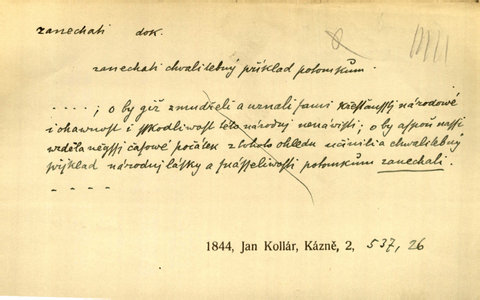 zanechati dok.
zanechati chvalitebný příklad potomkům.
....; o by giž zmudřeli a uznali sami křesťanštj národowé
i ohawnost i sskodliwost této národnj nenáwisti; o by aspoň nassi
wzdělaněgssj časowé počátek z tohoto ohledu učinili a chwalitebný
přjklad národnj lásky a snášseliwosti potomkům zanechali.
----
1844, Jan Kollár, Kázně, 2, 537, 26